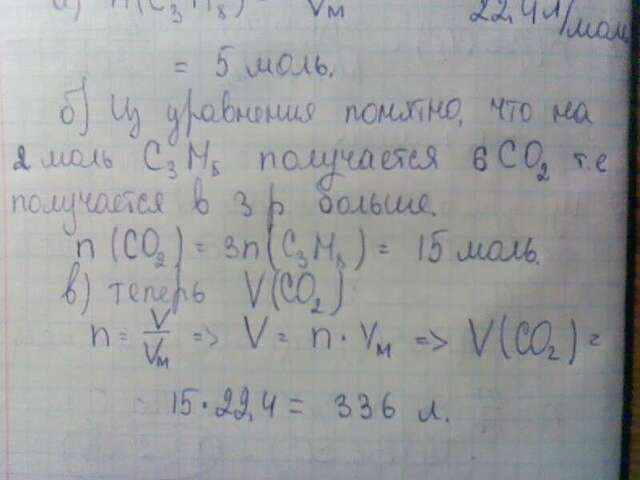 а) n(C₃H₈) = Vм 22,4 л/моль
= 5 моль.
б) Из уравнения понятно, что на
2 моль C₃H₈ получается 6CO₂ т.е
получается в 3 р больше.
n(CO₂) = 3n(C₃H₈) = 15 моль.
в) теперь V(CO₂)
n = V/Vм => V = n · Vм => V(CO₂) =
15 · 22,4 = 336 л.